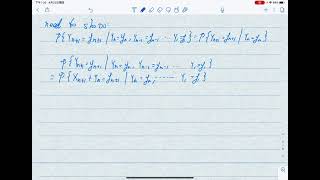 need to show
P{Yn+1 = yn+1 | Yn = yn, Yn-1 = yn-1 ... Y1 = y1} = P{Yn+1 = yn+1 | Yn = yn}
P{Yn+1 = yn+1 | Yn = yn, Yn-1 = yn-1 ... Y1 = y1}
= P{Xn+1 + Yn = yn+1 | Yn = yn, ... Y1 = y1}